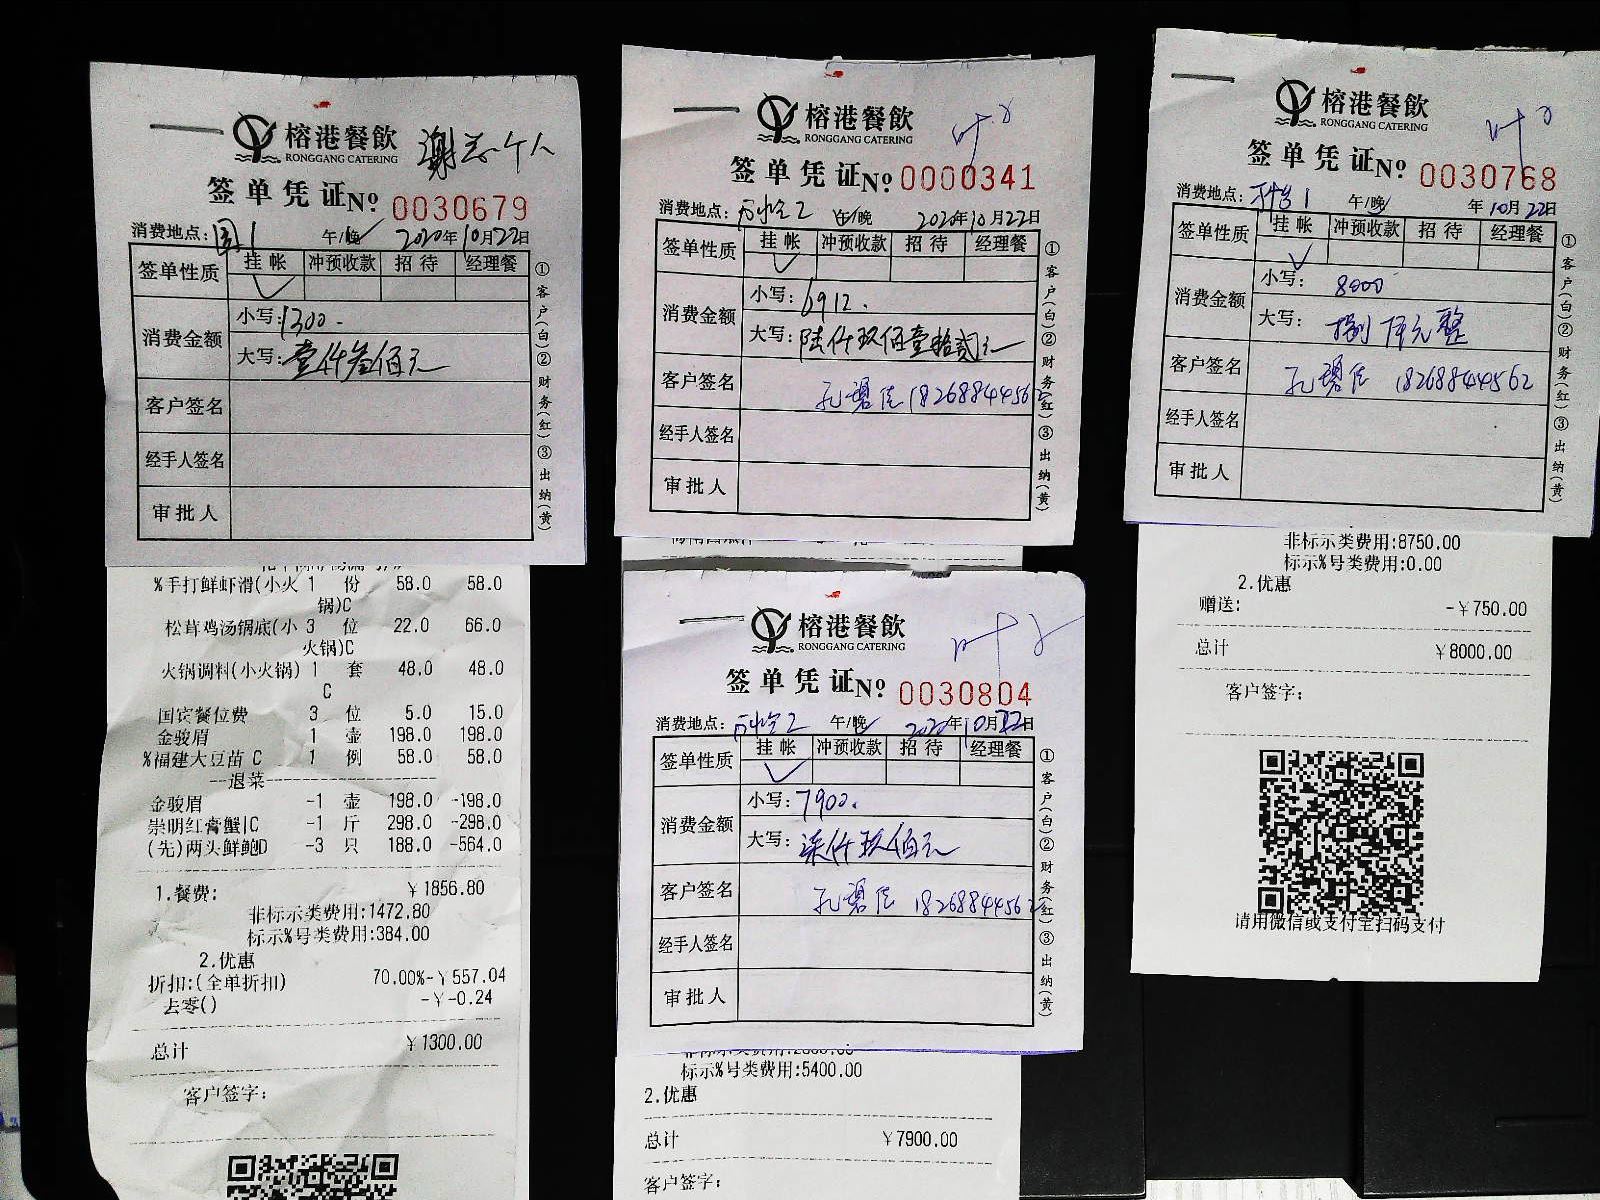 榕港餐飲
RONGGANG CATERING
签单凭证№ 0030679
消费地点: 国1 午/晚 2020年10月22日
签单性质 挂帐 冲预收款 招待 经理餐
消费金额 小写: 1300.-
大写: 壹仟叁佰元
客户签名
经手人签名
审批人
①客户(白)②财务(红)③出纳(黄)
%手打鲜虾滑(小火 1 份 58.0 58.0
锅)C
松茸鸡汤锅底(小 3 位 22.0 66.0
火锅)C
火锅调料(小火锅) 1 套 48.0 48.0
C
国宾餐位费 3 位 5.0 15.0
金骏眉 1 壶 198.0 198.0
%福建大豆苗 C 1 例 58.0 58.0
---退菜---
金骏眉 -1 壶 198.0 -198.0
崇明红膏蟹|C -1 斤 298.0 -298.0
(先)两头鲜鲍D -3 只 188.0 -564.0
1.餐费: ¥1856.80
非标示类费用:1472.80
标示%号类费用:384.00
2.优惠
折扣:(全单折扣) 70.00%-¥557.04
去零() -¥-0.24
总计 ¥1300.00
客户签字:
榕港餐飲
RONGGANG CATERING
签单凭证№ 0000341
消费地点: 午/晚 2020年10月22日
签单性质 挂帐 冲预收款 招待 经理餐
消费金额 小写: 6912.
大写: 陆仟玖佰壹拾贰元
客户签名 孔碧佳 18268844562
经手人签名
审批人
①客户(白)②财务(红)③出纳(黄)
榕港餐飲
RONGGANG CATERING
签单凭证№ 0030804
消费地点: 午/晚 2020年10月22日
签单性质 挂帐 冲预收款 招待 经理餐
消费金额 小写: 7900.
大写: 柒仟玖佰元
客户签名 孔碧佳 18268844562
经手人签名
审批人
①客户(白)②财务(红)③出纳(黄)
标示%号类费用:5400.00
2.优惠
总计 ¥7900.00
客户签字:
榕港餐飲
RONGGANG CATERING
签单凭证№ 0030768
消费地点: 午/晚 年10月22日
签单性质 挂帐 冲预收款 招待 经理餐
消费金额 小写: 8000
大写: 捌仟元整
客户签名 孔碧佳 18268844562
经手人签名
审批人
①客户(白)②财务(红)③出纳(黄)
非标示类费用:8750.00
标示%号类费用:0.00
2.优惠
赠送: -¥750.00
总计 ¥8000.00
客户签字:
请用微信或支付宝扫码支付